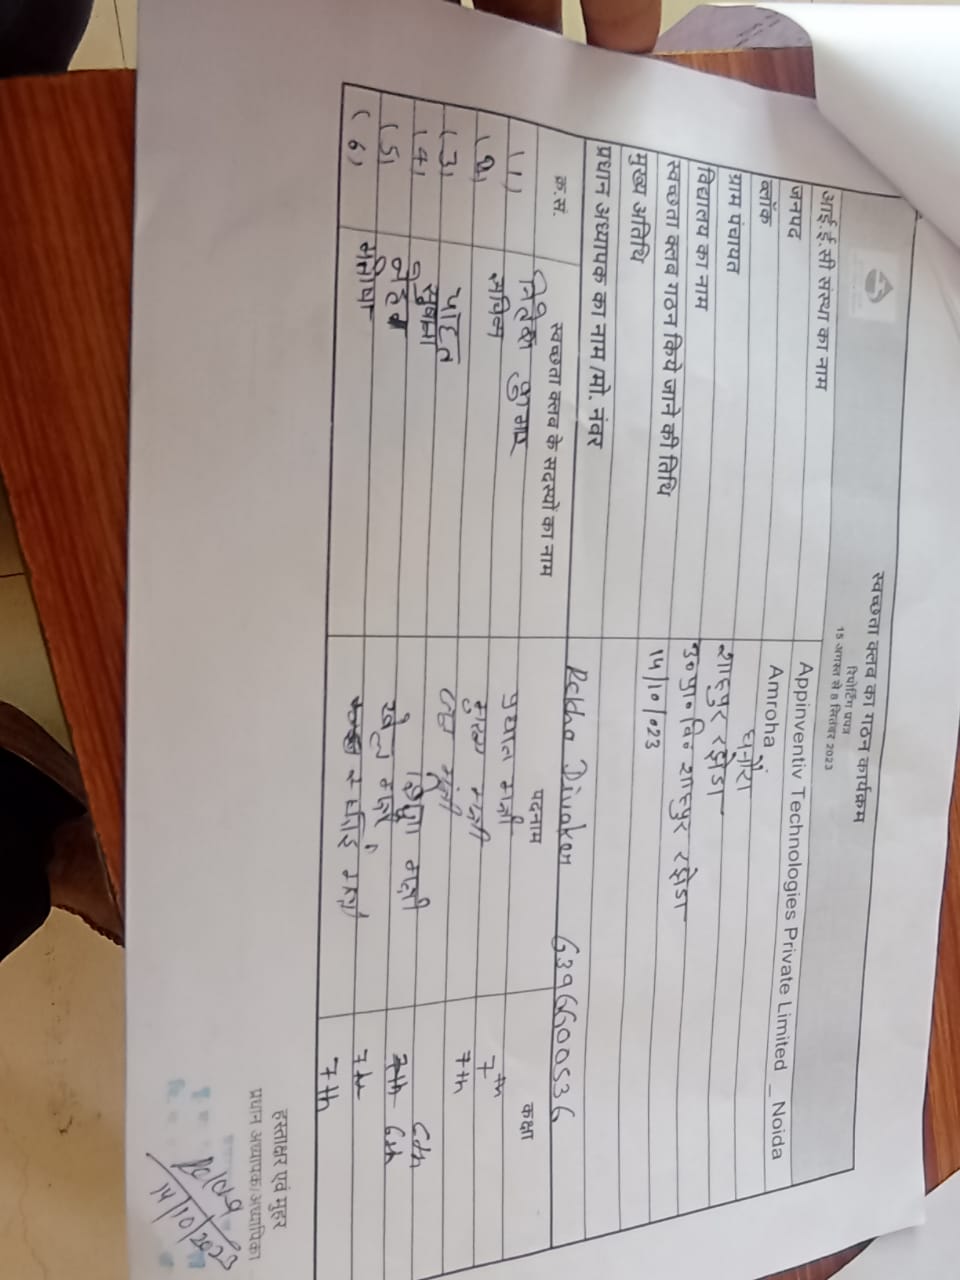 स्वच्छता क्लब का गठन कार्यक्रम
रिपोर्टिंग प्रपत्र
15 अगस्त से 8 सितंबर 2023
आई.ई.सी संस्था का नाम Appinventiv Technologies Private Limited _ Noida
जनपद Amroha
ब्लॉक धनौरा
ग्राम पंचायत शादपुर रझोडा
विद्यालय का नाम उ०प्रा०वि० शादपुर रझोडा
स्वच्छता क्लव गठन किये जाने की तिथि 14/10/023
मुख्य अतिथि
प्रधान अध्यापक का नाम/मो. नंबर Rekha Divaker 6396600536
क्र.सं. स्वच्छता क्लव के सदस्यों का नाम पदनाम कक्षा
(1) नितेश कुमार प्रधान मंत्री 7th
(2) मंत्री 7th
(3) मंत्री 6th
(4) शिक्षा मंत्री 6th
(5) खेल मंत्री 7th
(6) 7th
हस्ताक्षर एवं मुहर
प्रधान अध्यापक/अध्यापिका
14/10/2023